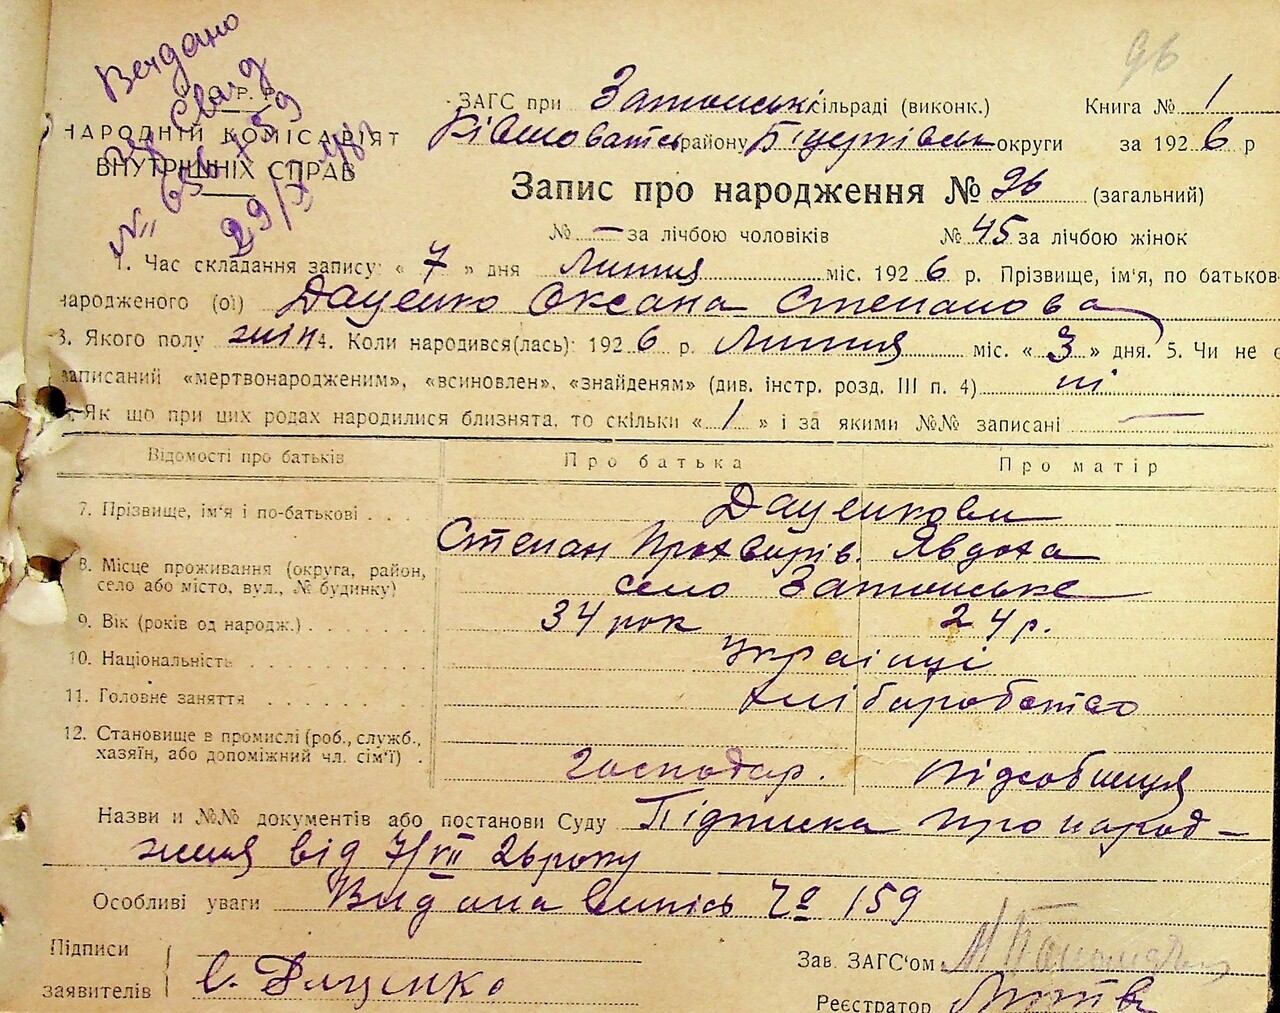 96
Видано
С.Р.Р.
НАРОДНІЙ КОМІСАРІЯТ
ВНУТРІШНІХ СПРАВ
29/
ЗАГС при Затонські сільраді (виконк.) Книга № 1
району округи за 1926 р
Запис про народження № 96 (загальний)
№ — за лічбою чоловіків № 45 за лічбою жінок
1. Час складання запису: « 7 » дня Липня міс. 1926 р. Прізвище, ім'я, по батьков
народженого (ої) Даценко Оксана Степанова
3. Якого полу жін 4. Коли народився(лась): 1926 р. Липня міс. « 3 » дня. 5. Чи не є
записаний «мертвонародженим», «всиновлен», «знайденям» (див. інстр. розд. III п. 4) ні
Як що при цих родах народилися близнята, то скільки « 1 » і за якими №№ записані —
Відомості про батьків Про батька Про матір
7. Прізвище, ім'я і по-батькові . . . Даценкови
Степан Явдоха
8. Місце проживання (округа, район,
село або місто, вул., № будинку) село Затонське
9. Вік (років од народж.) . 34 рок 24 р.
10. Національність Українці
11. Головне заняття хліборобство
12. Становище в промислі (роб., служб.,
хазяїн, або допоміжний чл. сім'ї) . господар. підсобниця
Назви и №№ документів або постанови Суду Підписка про народ-
ження від 7/VII 26 року
Особливі уваги Видана випись № 159
Підписи
заявителів С. Даценко
Зав. ЗАГС'ом
Реєстратор